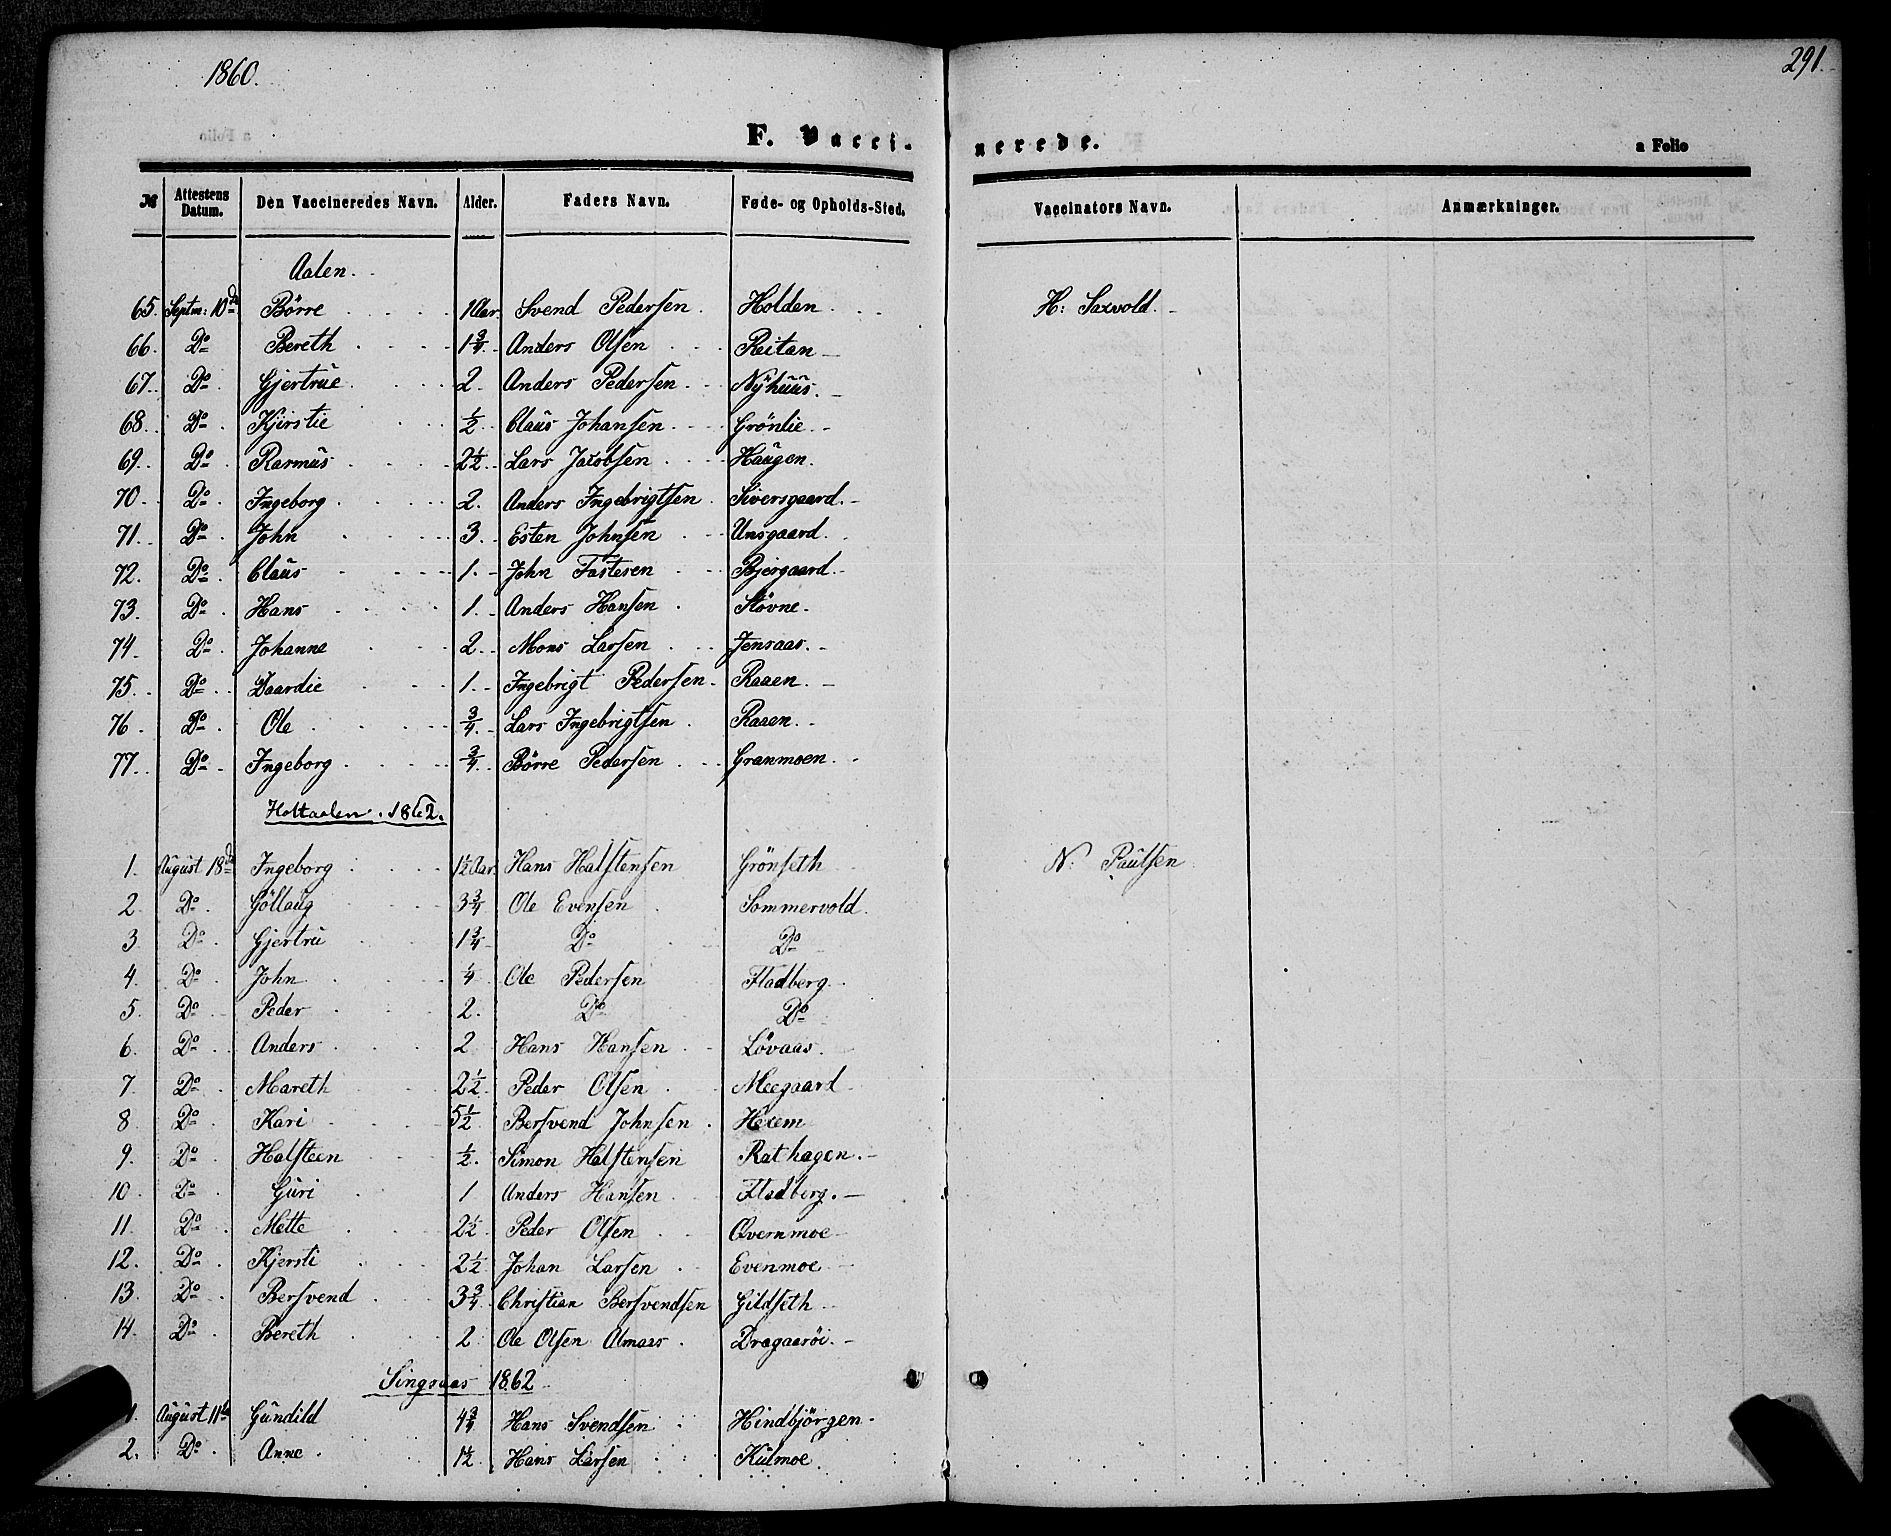 1860.
291.
F. Vacci-nerede.
a Folio
№ Attestens Datum. Den Vaccineredes Navn. Alder. Faders Navn. Føde- og Opholds-Sted. Vaccinators Navn. Anmærkninger.
Aalen.
65. Septm: 10de Börre 1 Aar. Svend Pedersen. Holden H: Saxvold.
66. Do Bereth 1 3/4. Anders Olsen Reitan
67. Do Gjertrue 2. Anders Pedersen Nÿhuus.
68. Do Kjirstie 1/2 Claus Johansen Grönlie
69. Do Rasmus 2 1/2 Lars Jacobsen Haugen.
70 Do Ingeborg 2. Anders Ingebrigtsen Siversgaard.
71. Do John 3. Esten Johnsen Unsgaard.
72. Do Claus 1. John Fastesen Bjergaard.
73. Do Hans 1. Anders Hansen Støvne.
74. Do Johanne 2. Mons Larsen Jensaas.
75. Do Baardie 1. Ingebrigt Pedersen Raaen.
76. Do Ole 3/4 Lars Ingebrigtsen Raaen.
77. Do Ingeborg 3/4 Börre Pedersen Granmoen
Holtaalen. 1862.
1. August 18de Ingeborg 1 1/2 Aar Hans Halstensen Grönseth N. Paulsen
2. Do Göllaug 3 3/4 Ole Evensen Sommervold.
3 Do Gjertru 1 3/4 Do Do
4. Do John 1/4 Ole Pedersen Fladberg
5. Do Peder 2. Do Do
6. Do Anders 2 Hans Hansen Lövaas.
7 Do Mareth 2 1/2 Peder Olsen Meegaard
8 Do Kari 5 1/2 Bersvend Johnsen Hexem
9. Do Halsteen 1/2. Simon Halstensen Rathagen.
10. Do Guri 1 Anders Hansen Fladberg.
11. Do Mette 2 1/2 Peder Olsen Qvernmoe
12. Do Kjersti 2 1/2 Johan Larsen Evenmoe
13. Do Bersvend 3 3/4 Christian Bersvendsen Gildseth
14. Do Bereth 2 Ole Olsen Almaas Dragaaröi.
Singsaas 1862
1. August 11te Gundild 4 3/4 Hans Svendsen Hindbjörgen
2. Do Anne 1 1/2 Hans Larsen Kulmoe